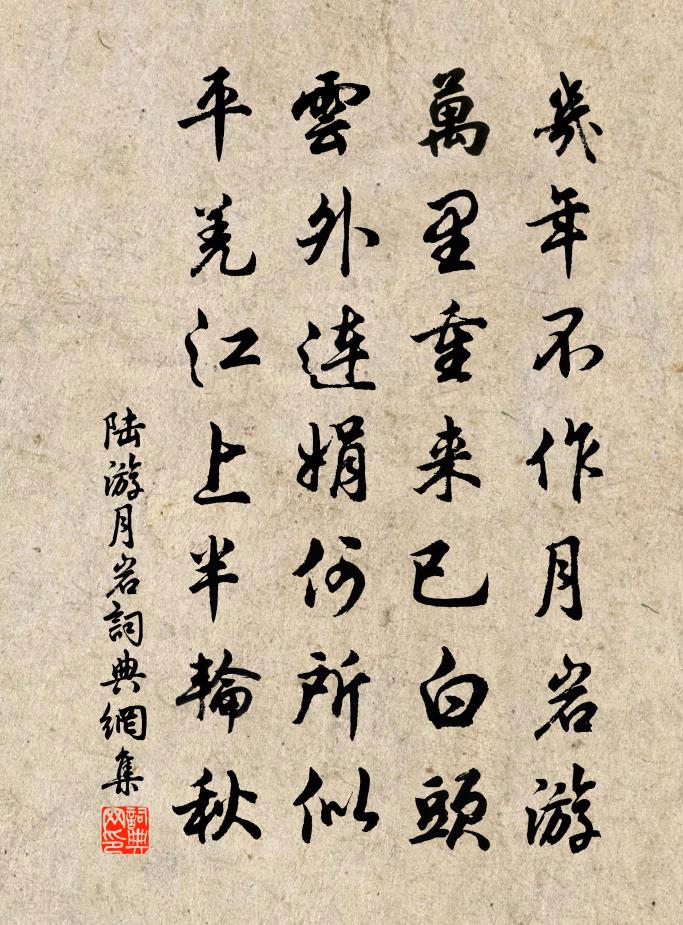 幾年不作月岩游
萬里重来已白頭
雲外連娟何所似
平羌江上半輪秋
陆游月岩詞典網集
詞典网印